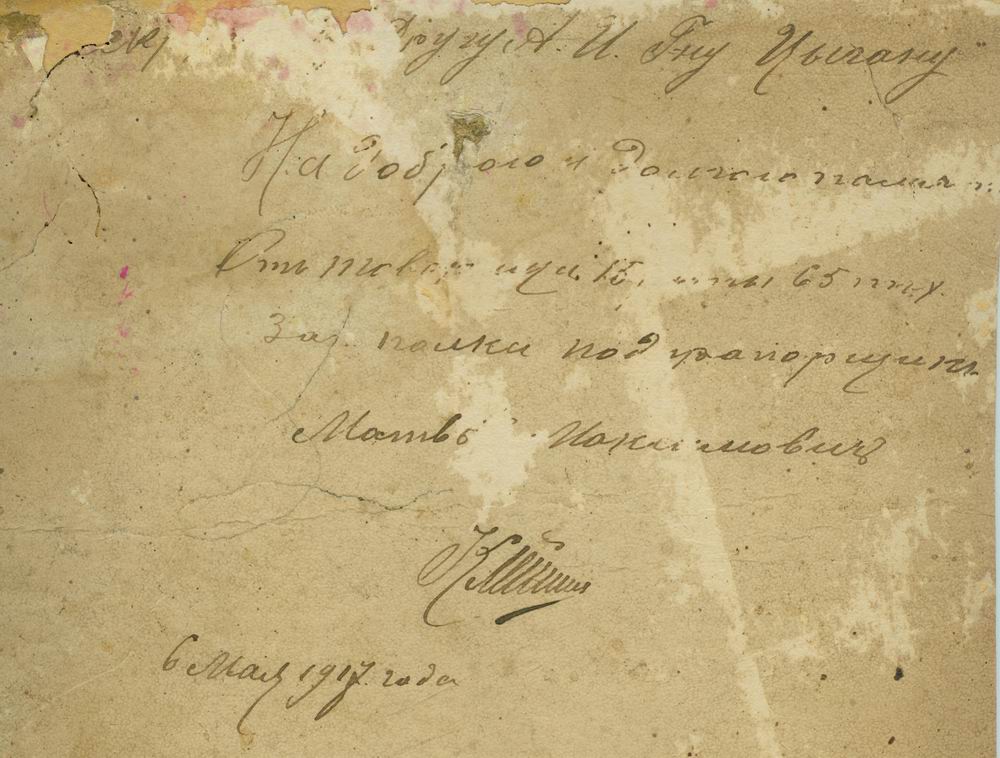 Другу А. И. Гну Цыгану"
На доброю и долгою память
Отъ товарища 65 пех.
Зап. полка подпрапорщикъ
Матвѣ Иокимович
6 Мая 1917 года